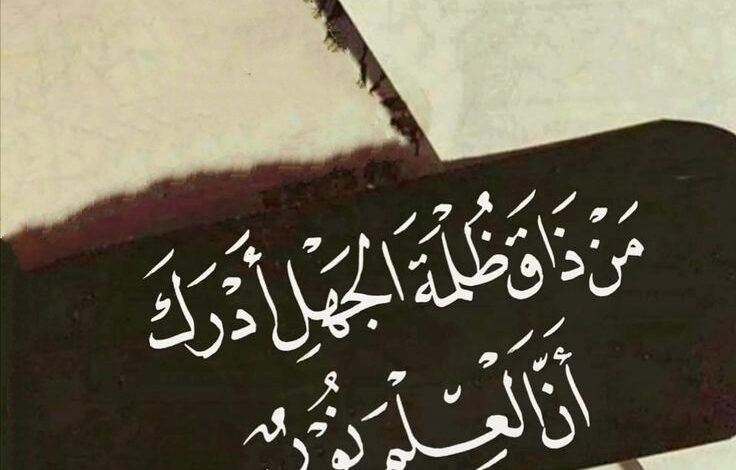 مَنْ ذَاقَ ظُلْمَةَ الجَهْلِ أَدْرَكَ
أَنَّ العِلْمَ نُوْرٌ